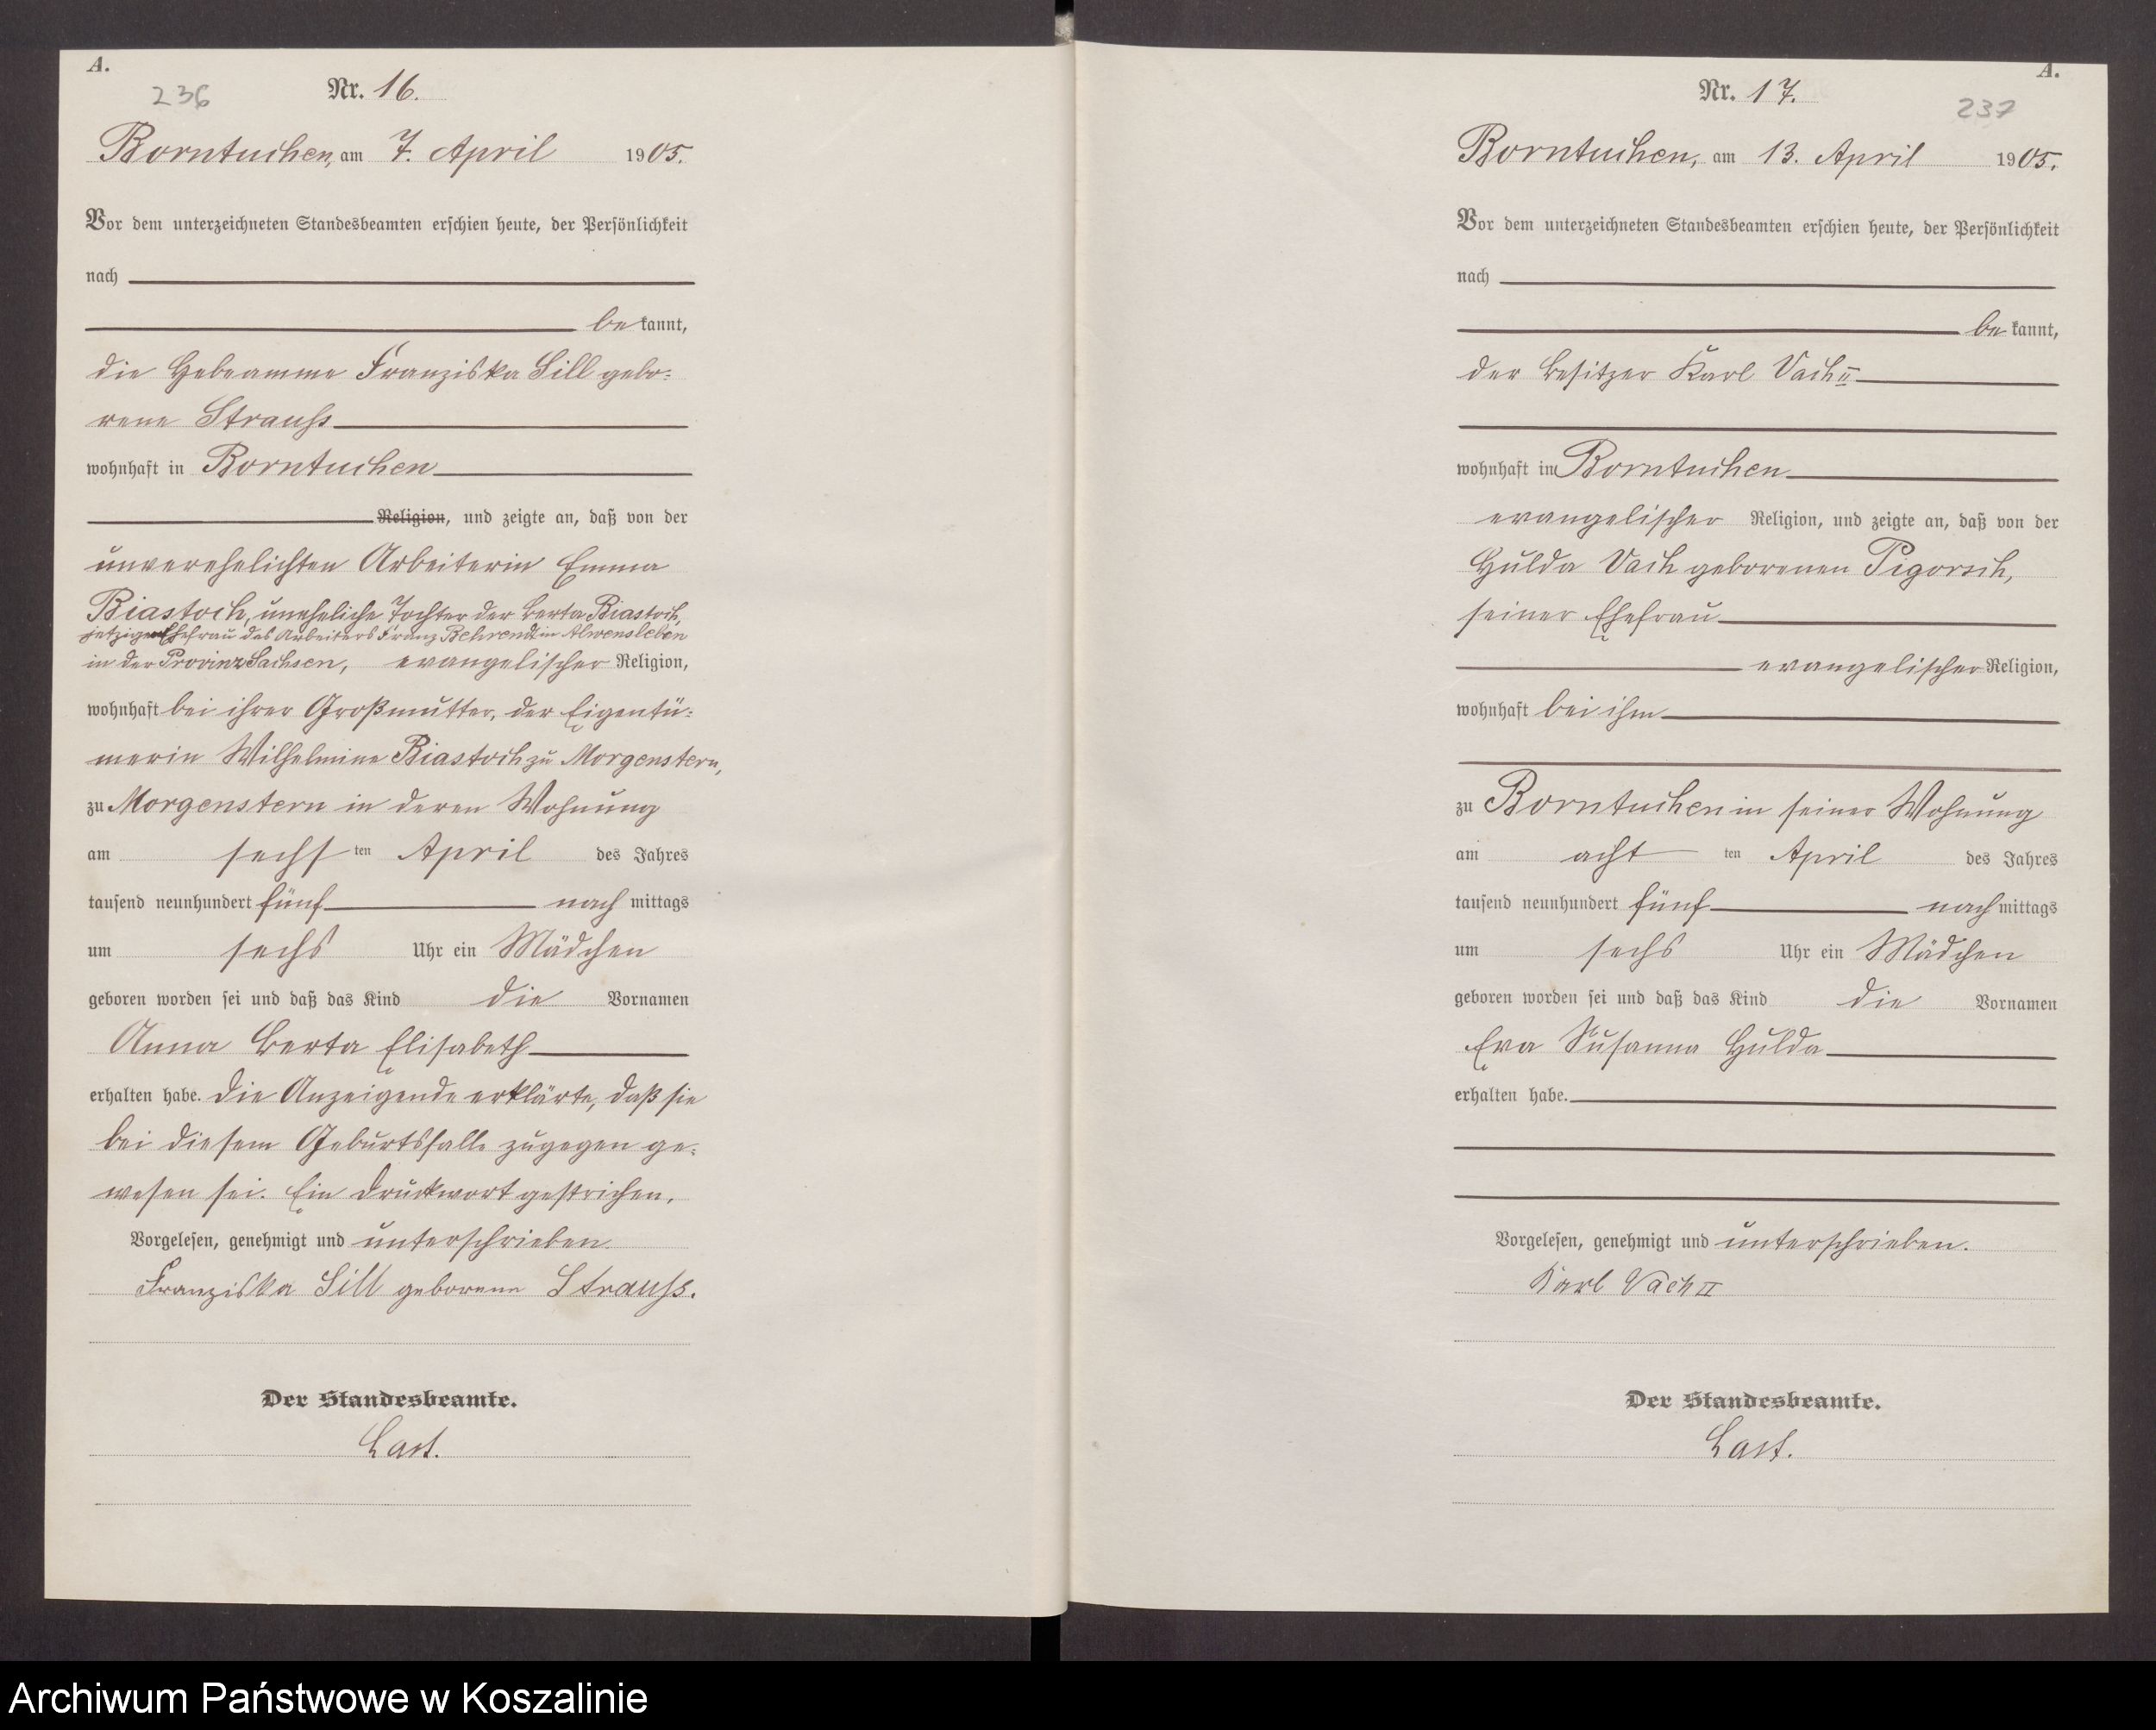 A.
236
Nr. 16.
Borntuchen, am 7. April 1905.
Vor dem unterzeichneten Standesbeamten erschien heute, der Persönlichkeit
nach
bekannt,
die Hebeamme Franziska Sill gebo-
rene Strauss
wohnhaft in Borntuchen
Religion, und zeigte an, daß von der
unverehelichten Arbeiterin Emma
Biastoch, uneheliche Tochter der Berta Biastoch,
jetzigen Ehefrau des Arbeiters Franz Behrendt in Alvensleben
in der Provinz Sachsen, evangelischer Religion,
wohnhaft bei ihrer Großmutter, der Eigentü-
merin Wilhelmine Biastoch zu Morgenstern,
zu Morgenstern in deren Wohnung
am sechsten April des Jahres
tausend neunhundert fünf nachmittags
um sechs Uhr ein Mädchen
geboren worden sei und daß das Kind die Vornamen
Anna Berta Elisabeth
erhalten habe. Die Anzeigende erklärte, daß sie
bei diesem Geburtsfalle zugegen ge-
wesen sei. Ein Druckwort gestrichen.
Vorgelesen, genehmigt und unterschrieben.
Franziska Sill geborene Strauss.
Der Standesbeamte.
Last.
A.
237
Nr. 17.
Borntuchen, am 13. April 1905.
Vor dem unterzeichneten Standesbeamten erschien heute, der Persönlichkeit
nach
bekannt,
der Besitzer Karl Vach II
wohnhaft in Borntuchen
evangelischer Religion, und zeigte an, daß von der
Hulda Vach geborenen Pigorsch,
seiner Ehefrau
evangelischer Religion,
wohnhaft bei ihm
zu Borntuchen in seiner Wohnung
am achtten April des Jahres
tausend neunhundert fünf nachmittags
um sechs Uhr ein Mädchen
geboren worden sei und daß das Kind die Vornamen
Eva Susanna Hulda
erhalten habe.
Vorgelesen, genehmigt und unterschrieben.
Karl Vach II
Der Standesbeamte.
Last.
Archiwum Państwowe w Koszalinie